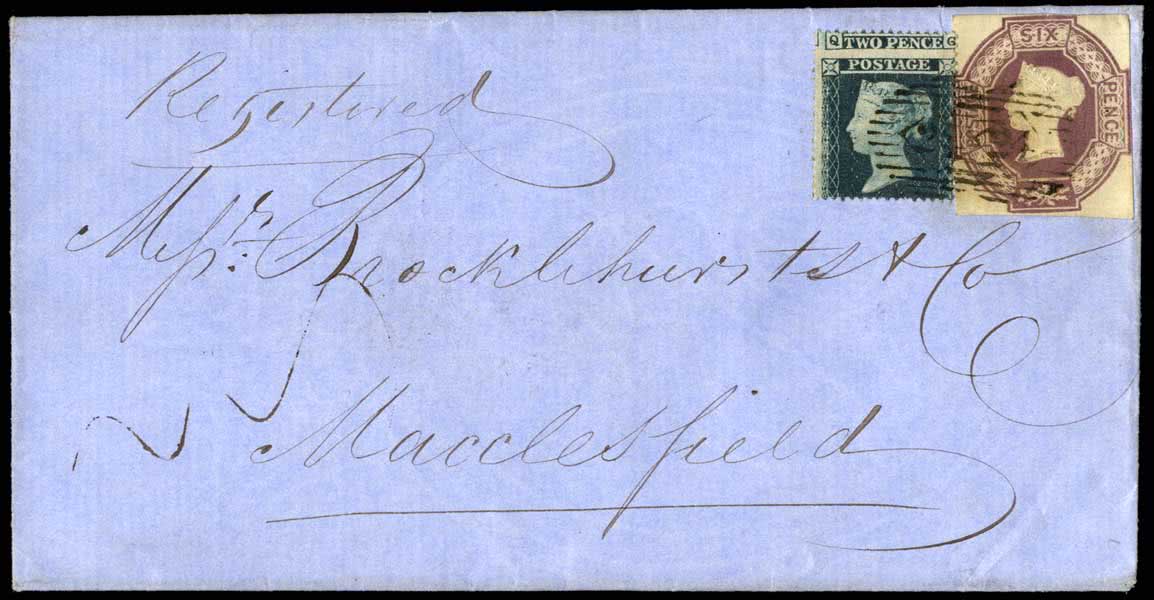 Registered
Q TWO PENCE G
POSTAGE
SIX
PENCE
Messrs. Brocklehursts & Co
Macclesfield